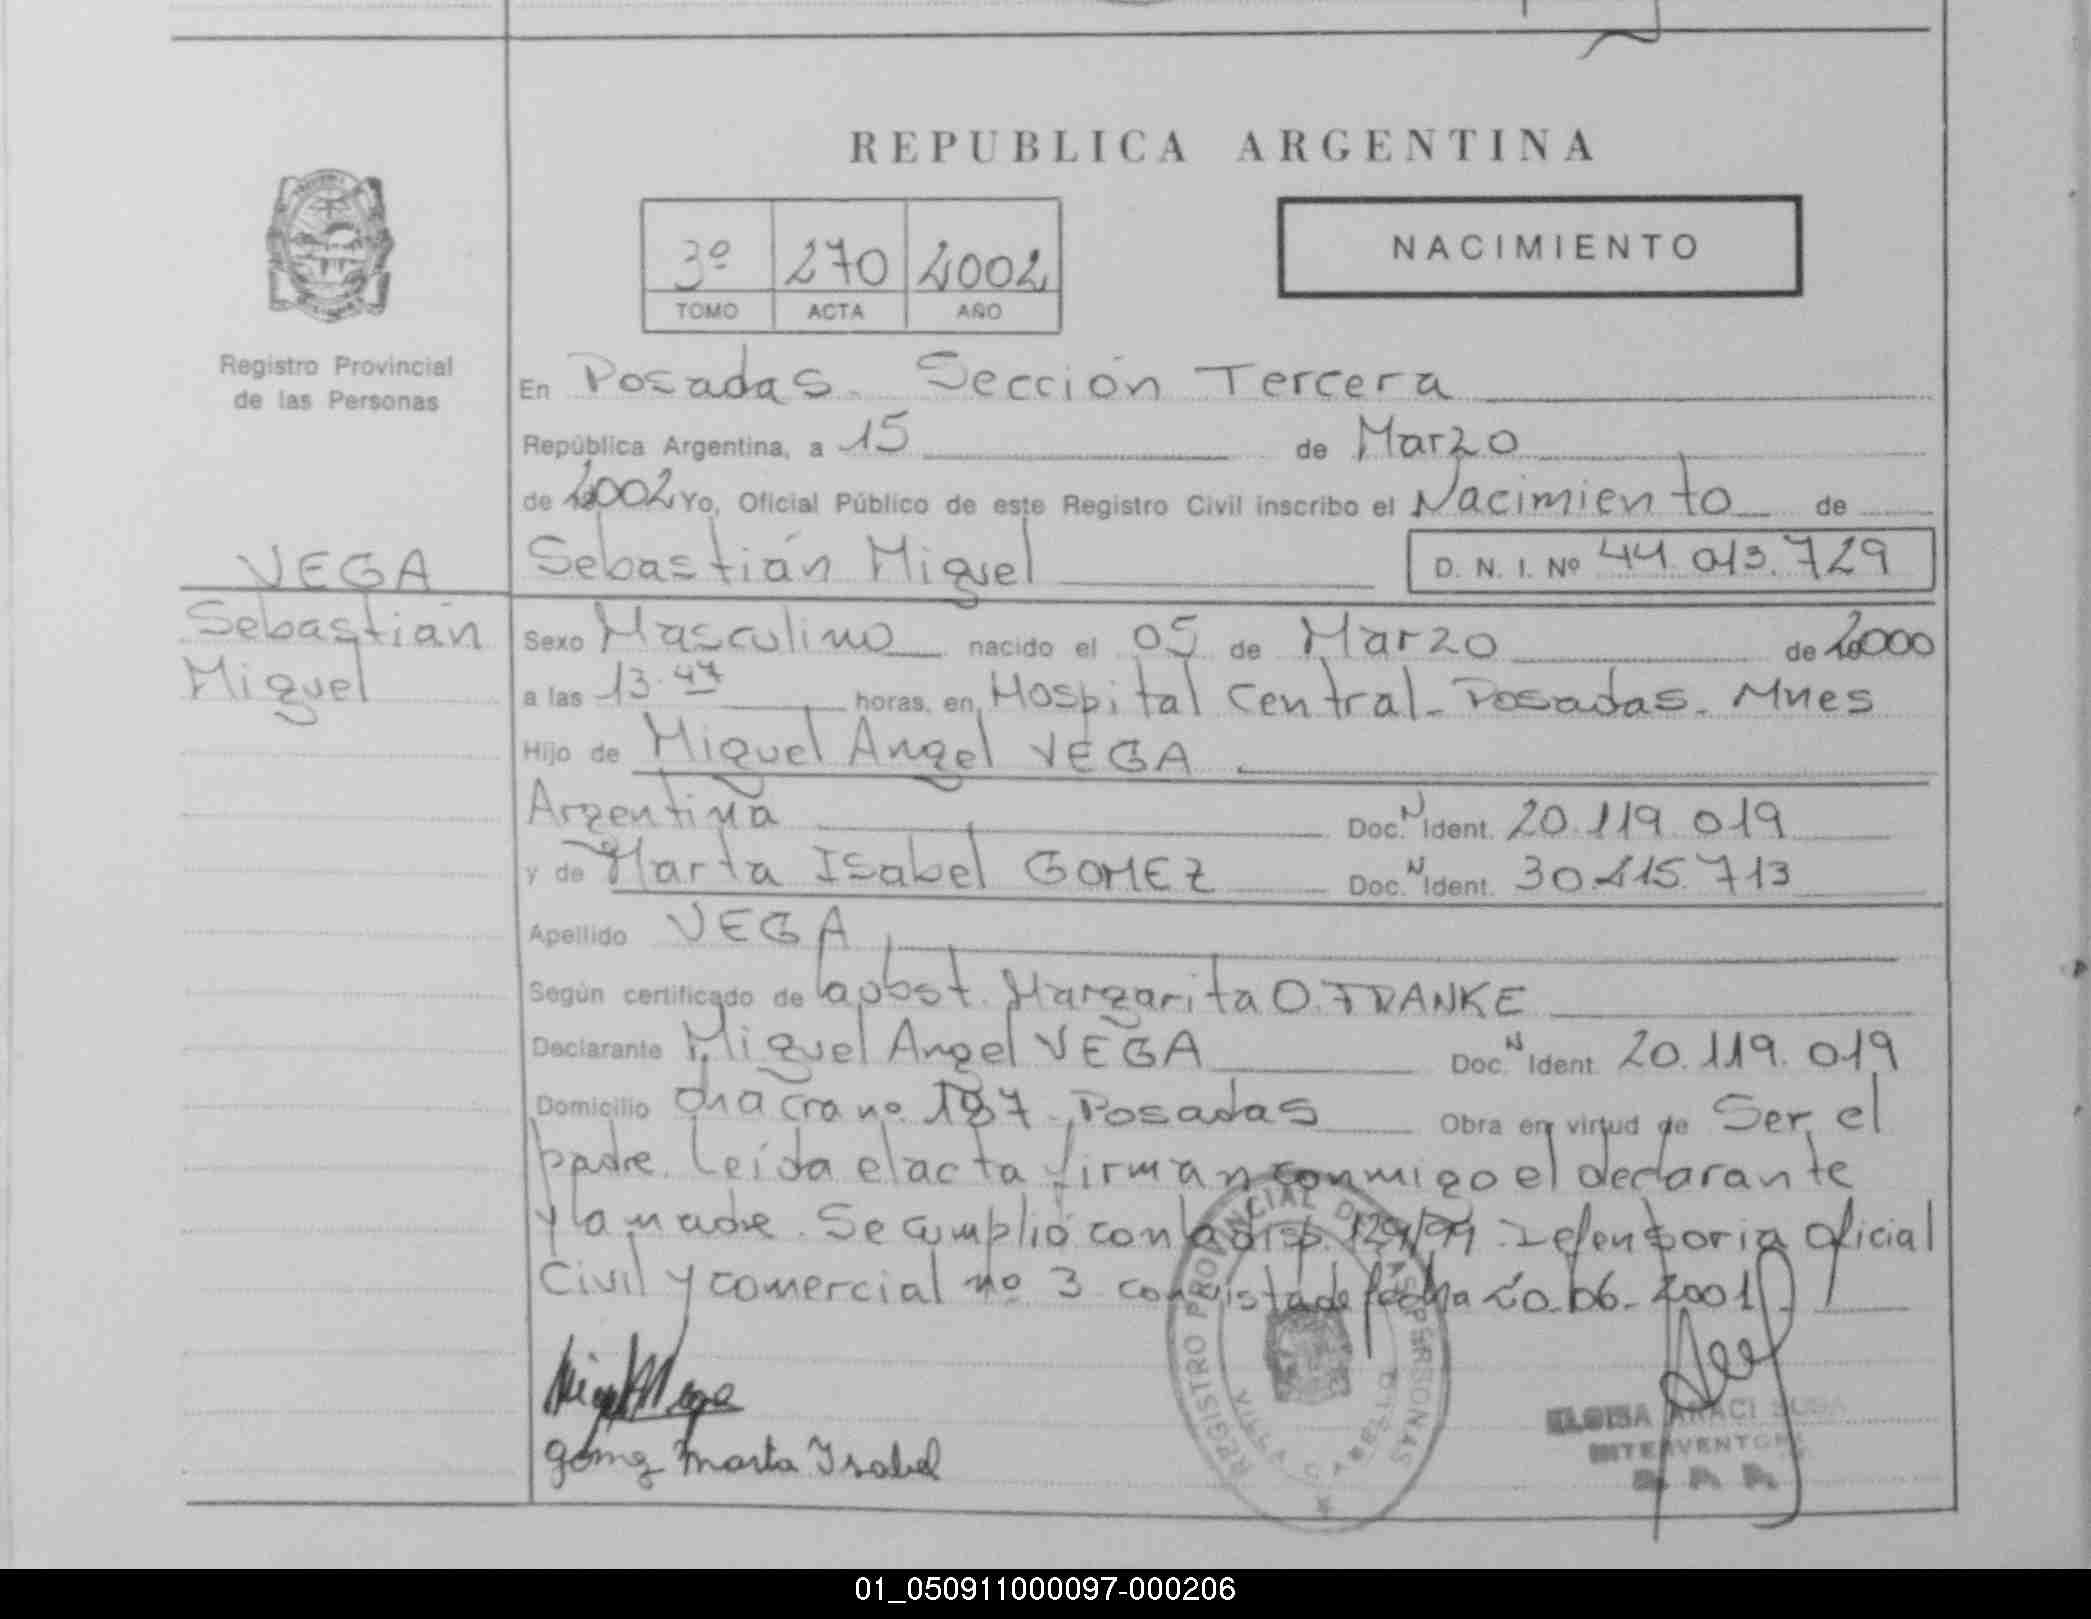 REPUBLICA ARGENTINA
3º 270 2002
TOMO ACTA AÑO
NACIMIENTO
Registro Provincial
de las Personas
En Posadas. Sección Tercera
República Argentina, a 15 de Marzo
de 2002 Yo, Oficial Público de este Registro Civil inscribo el Nacimiento de
Sebastián Miguel D. N. I. Nº 44.013.729
VEGA
Sebastián
Miguel
Sexo Masculino nacido el 05 de Marzo de 2000
a las 13.47 horas, en Hospital Central - Posadas. Mnes
Hijo de Miguel Angel VEGA
Argentina Doc. N Ident. 20.119.019
y de Marta Isabel GOMEZ Doc. N Ident. 30.415.713
Apellido VEGA
Según certificado de la obst. Margarita O. FRANKE
Declarante Miguel Angel VEGA Doc. N Ident. 20.119.019
Domicilio Chacra nº 187 - Posadas Obra en virtud de Ser el
padre. Leída el acta firman conmigo el declarante
y la madre. Se cumplió con la disp. 129/99 Defensoria Oficial
Civil y comercial nº 3 con vista de fecha 20-06-2001
Gomez Marta Isabel
REGISTRO PROVINCIAL DE LAS PERSONAS
ELOISA ARACI SOSA
INTERVENTORA
01_050911000097-000206